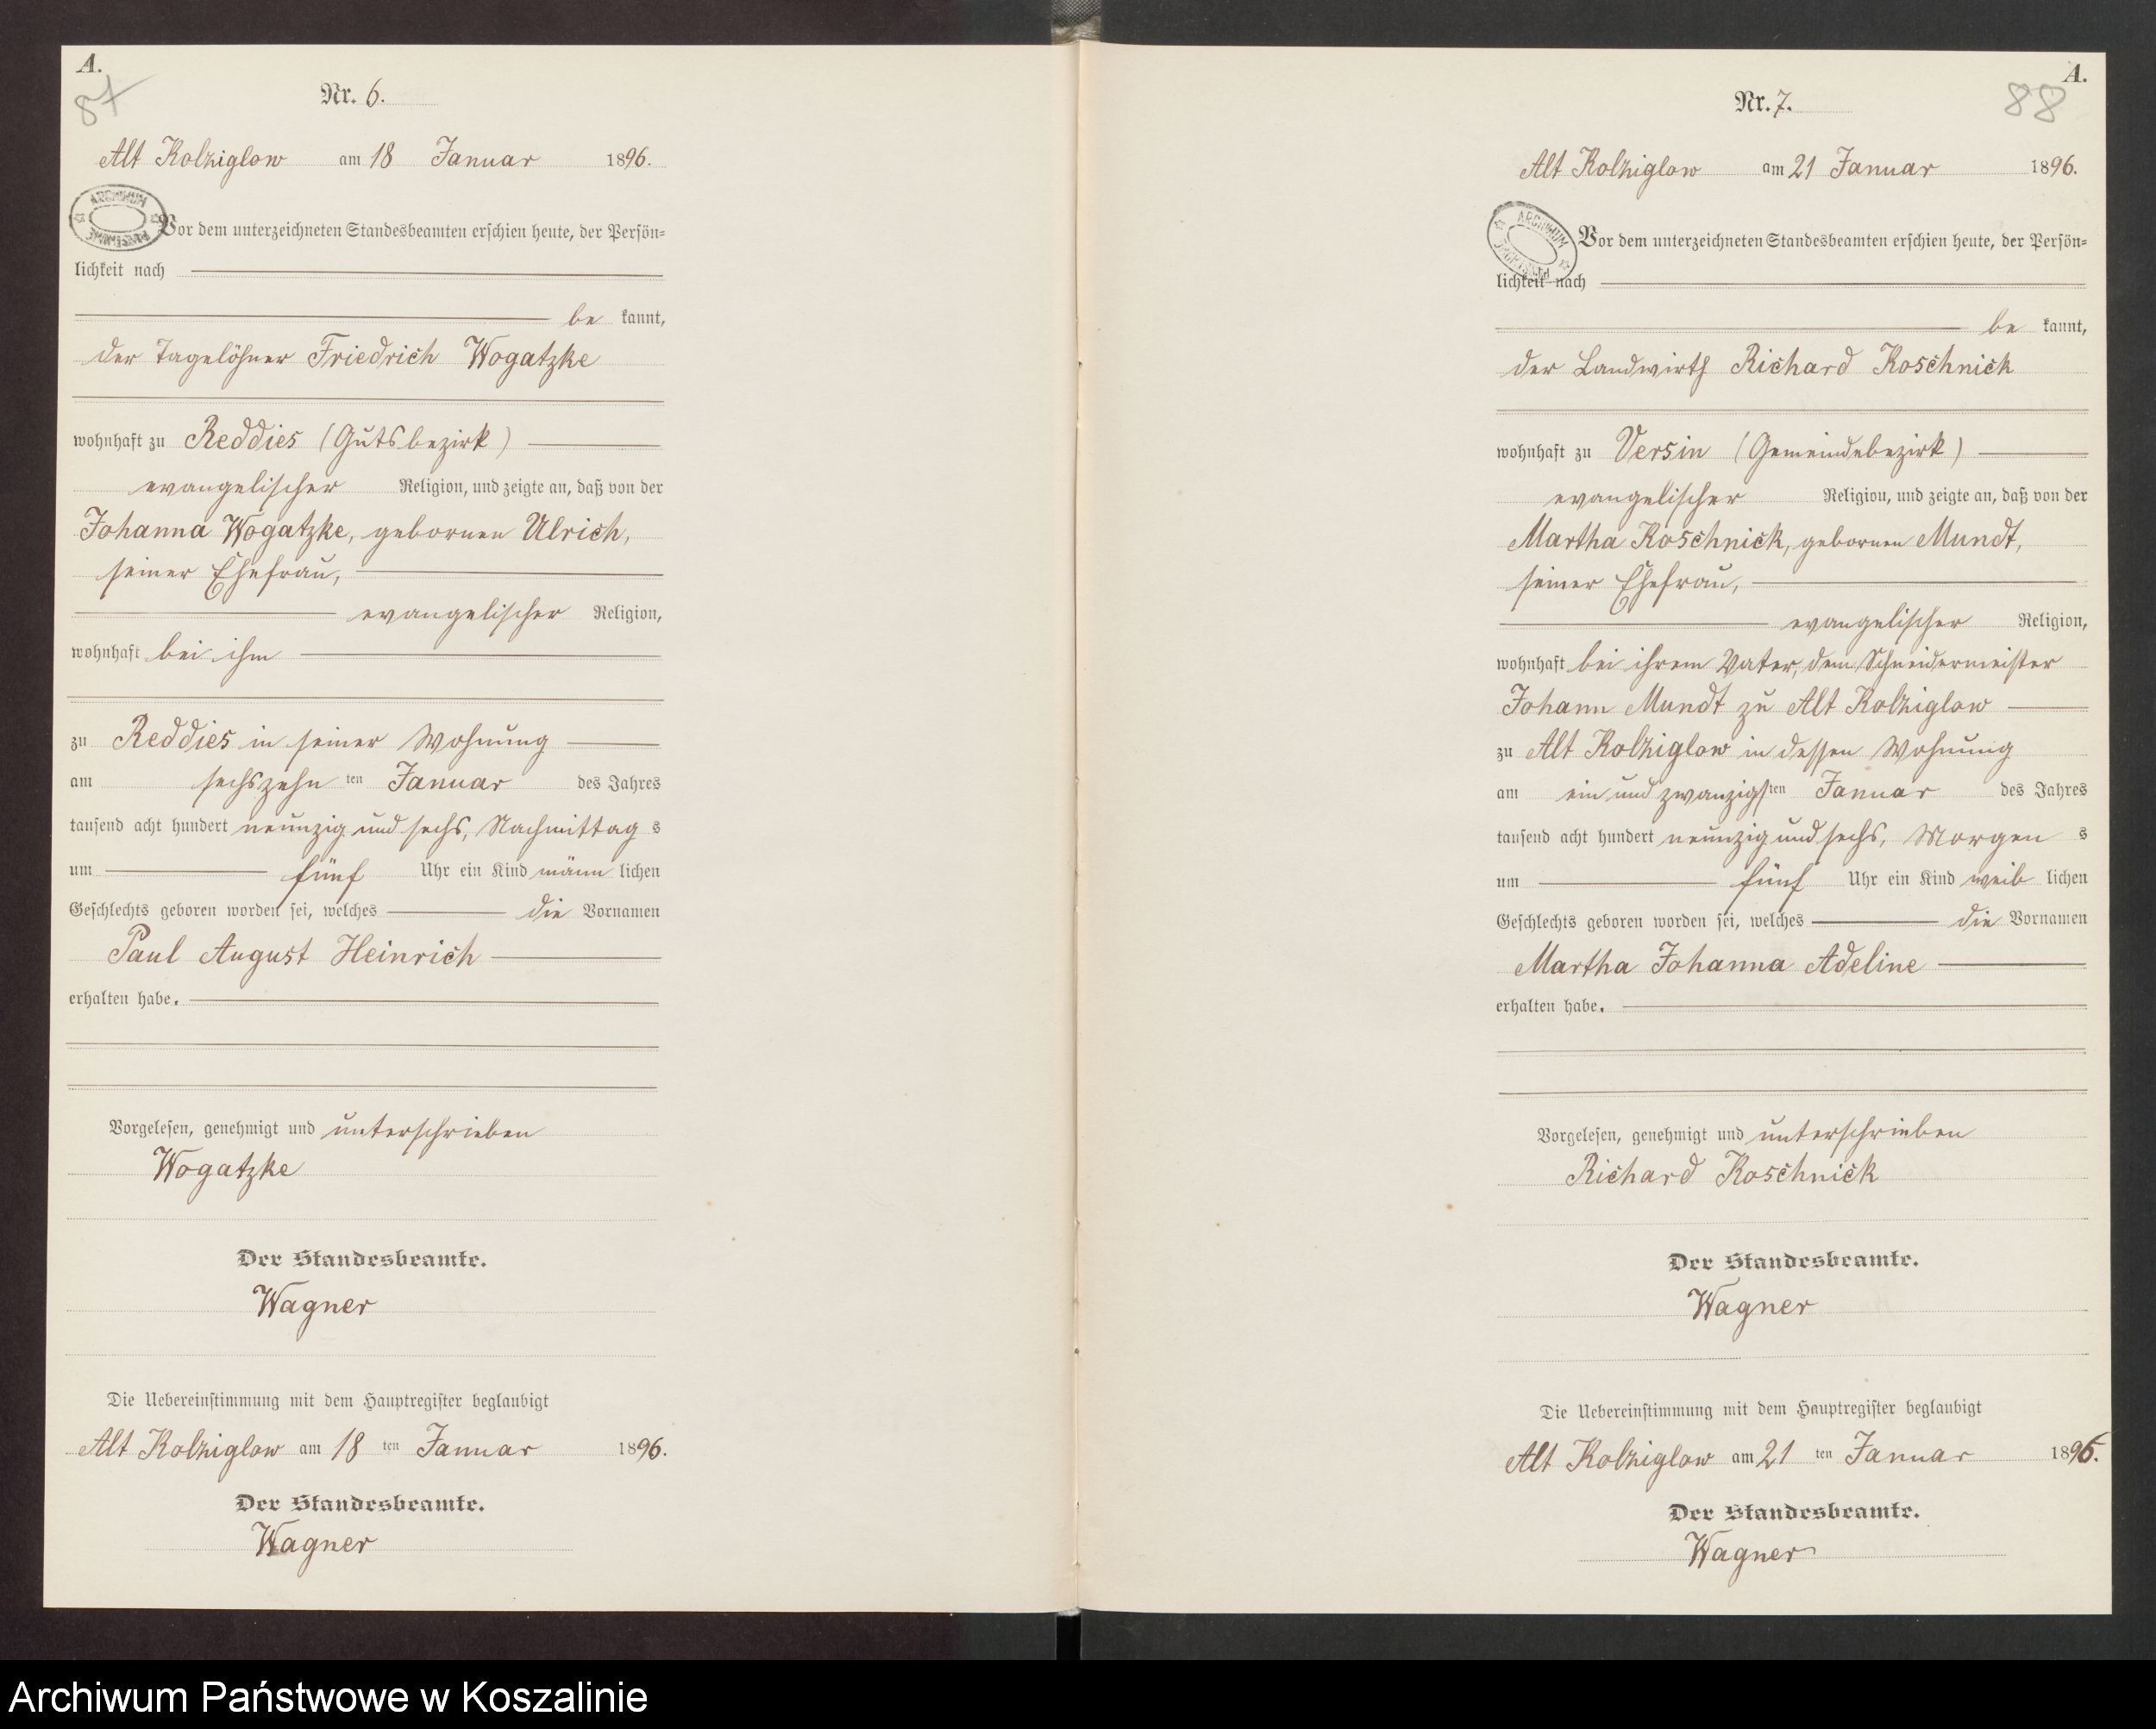 A.
87
Nr. 6.
Alt Kolziglow am 18 Januar 1896.
ARCHIWUM
Vor dem unterzeichneten Standesbeamten erschien heute, der Persön=
lichkeit nach
be kannt,
der Tagelöhner Friedrich Wogatzke
wohnhaft zu Reddies (Gutsbezirk)
evangelischer Religion, und zeigte an, daß von der
Johanna Wogatzke, gebornen Ulrich,
seiner Ehefrau,
evangelischer Religion,
wohnhaft bei ihm
zu Reddies in seiner Wohnung
am sechszehn ten Januar des Jahres
tausend acht hundert neunzig und sechs, Nachmittag s
um fünf Uhr ein Kind männ lichen
Geschlechts geboren worden sei, welches die Vornamen
Paul August Heinrich
erhalten habe.
Vorgelesen, genehmigt und unterschrieben
Wogatzke
Der Standesbeamte.
Wagner
Die Uebereinstimmung mit dem Hauptregister beglaubigt
Alt Kolziglow am 18 ten Januar 1896.
Der Standesbeamte.
Wagner
A.
88
Nr. 7.
Alt Kolziglow am 21 Januar 1896.
ARCHIWUM
Vor dem unterzeichneten Standesbeamten erschien heute, der Persön=
lichkeit nach
be kannt,
der Landwirth Richard Koschnick
wohnhaft zu Versin (Gemeindebezirk)
evangelischer Religion, und zeigte an, daß von der
Martha Koschnick, gebornen Mundt,
seiner Ehefrau,
evangelischer Religion,
wohnhaft bei ihrem Vater, dem Schneidermeister
Johann Mundt zu Alt Kolziglow
zu Alt Kolziglow in dessen Wohnung
am ein und zwanzigsten Januar des Jahres
tausend acht hundert neunzig und sechs, Morgen s
um fünf Uhr ein Kind weib lichen
Geschlechts geboren worden sei, welches die Vornamen
Martha Johanna Adeline
erhalten habe.
Vorgelesen, genehmigt und unterschrieben
Richard Koschnick
Der Standesbeamte.
Wagner
Die Uebereinstimmung mit dem Hauptregister beglaubigt
Alt Kolziglow am 21 ten Januar 1896.
Der Standesbeamte.
Wagner
Archiwum Państwowe w Koszalinie